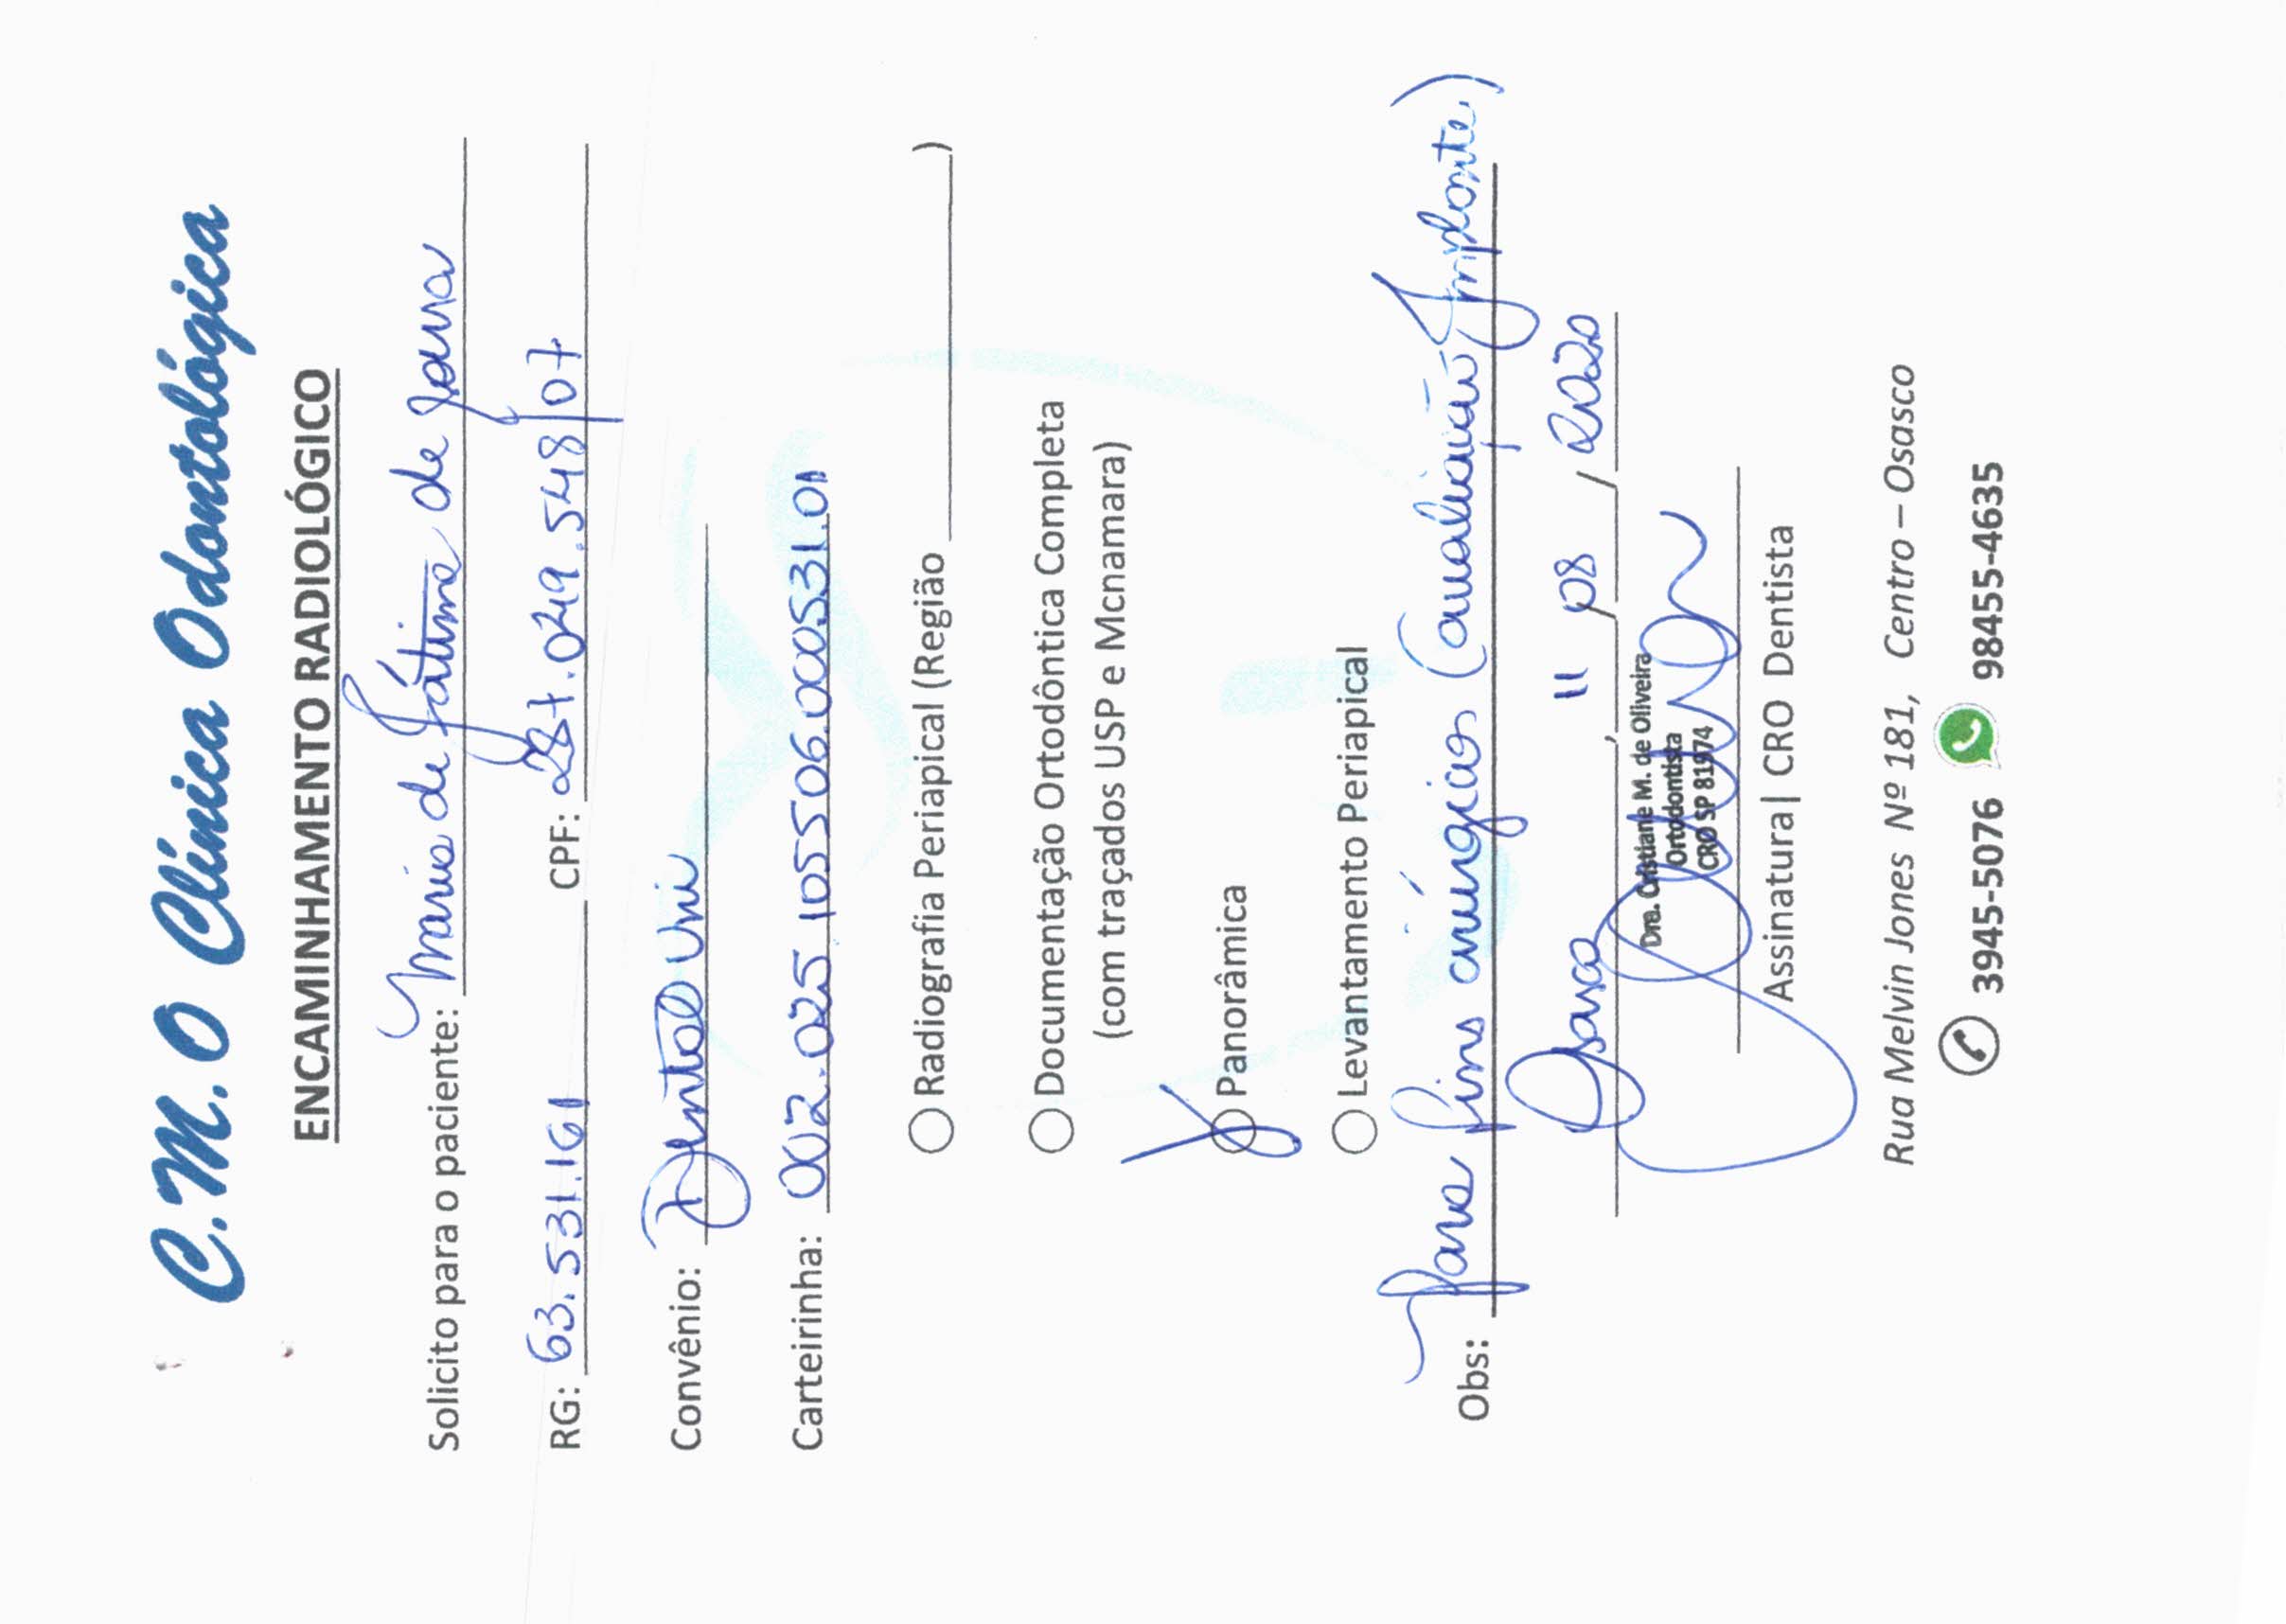 C.M.O Clínica Odontológica
ENCAMINHAMENTO RADIOLÓGICO
Solicito para o paciente: Maria de Fátima de
RG: 63.531.161 CPF: 287.049.548/07
Convênio: Dental Uni
Carteirinha: 002.025.105506.000531.01
Radiografia Periapical (Região )
Documentação Ortodôntica Completa
(com traçados USP e Mcnamara)
Panorâmica
Levantamento Periapical
Obs: Para fins cirúrgicos (avaliação Implante)
Osasco, 11 / 08 / 2020
Dra. Cristiane M. de Oliveira
Ortodontista
CRO SP 81974
Assinatura| CRO Dentista
Rua Melvin Jones Nº 181, Centro – Osasco
3945-5076 98455-4635